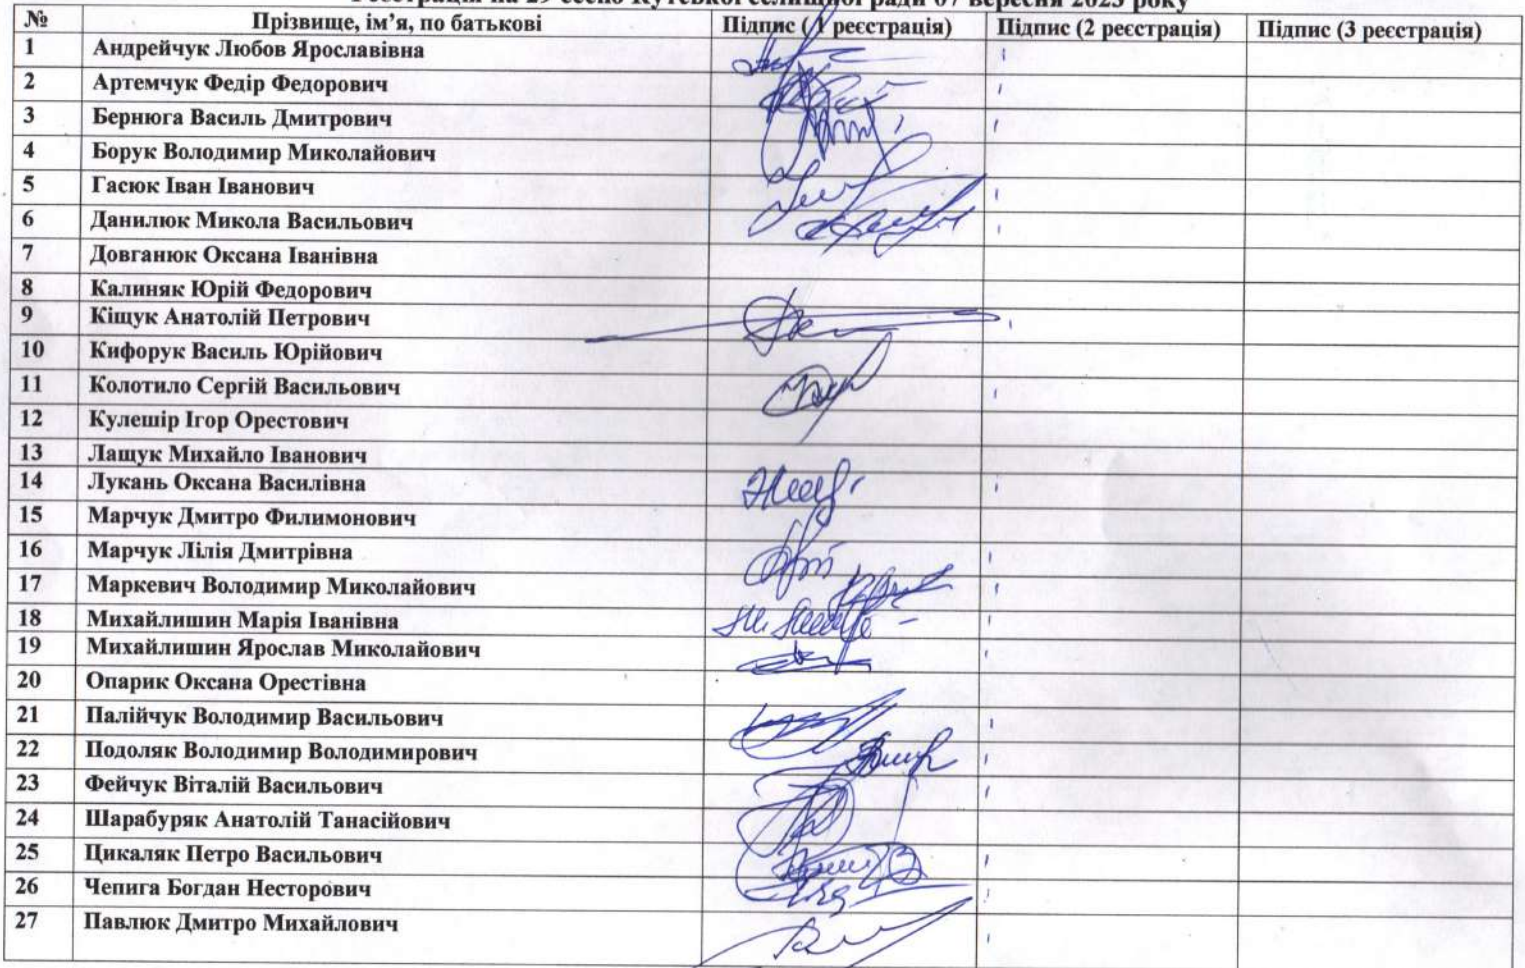 Реєстрація на 29 сесію Кутської селищної ради 07 вересня 2023 року
№ Прізвище, ім’я, по батькові Підпис ( 1 реєстрація) Підпис (2 реєстрація) Підпис (3 реєстрація)
1 Андрейчук Любов Ярославівна
2 Артемчук Федір Федорович
3 Бернюга Василь Дмитрович
4 Борук Володимир Миколайович
5 Гасюк Іван Іванович
6 Данилюк Микола Васильович
7 Довганюк Оксана Іванівна
8 Калиняк Юрій Федорович
9 Кіщук Анатолій Петрович
10 Кифорук Василь Юрійович
11 Колотило Сергій Васильович
12 Кулешір Ігор Орестович
13 Лащук Михайло Іванович
14 Лукань Оксана Василівна
15 Марчук Дмитро Филимонович
16 Марчук Лілія Дмитрівна
17 Маркевич Володимир Миколайович
18 Михайлишин Марія Іванівна
19 Михайлишин Ярослав Миколайович
20 Опарик Оксана Орестівна
21 Палійчук Володимир Васильович
22 Подоляк Володимир Володимирович
23 Фейчук Віталій Васильович
24 Шарабуряк Анатолій Танасійович
25 Цикаляк Петро Васильович
26 Чепига Богдан Несторович
27 Павлюк Дмитро Михайлович